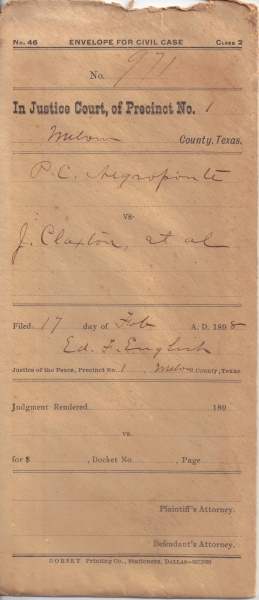 No. 46 ENVELOPE FOR CIVIL CASE CLASS 2
No. 971
In Justice Court, of Precinct No. 1
Milam County, Texas.
P. C. Negroponte
VS.
J. Claxton, et al
Filed 17 day of Feb A. D. 1898
Ed. F. English
Justice of the Peace, Precinct No. 1 Milam County, Texas
Judgment Rendered 189
vs.
for $ , Docket No. , Page
Plaintiff's Attorney.
Defendant's Attorney.
DORSEY Printing Co., Stationers, DALLAS